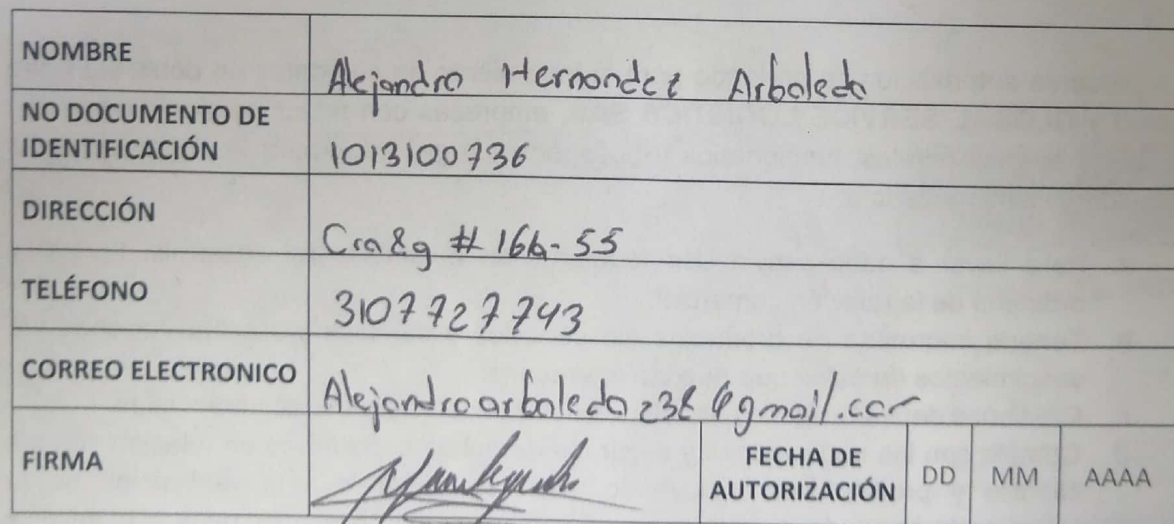 NOMBRE
Alejandro Hernandez Arboleda
NO DOCUMENTO DE
IDENTIFICACIÓN
1013100736
DIRECCIÓN
# 16b-55
TELÉFONO
3107727743
CORREO ELECTRONICO
FIRMA
FECHA DE
AUTORIZACIÓN DD MM AAAA